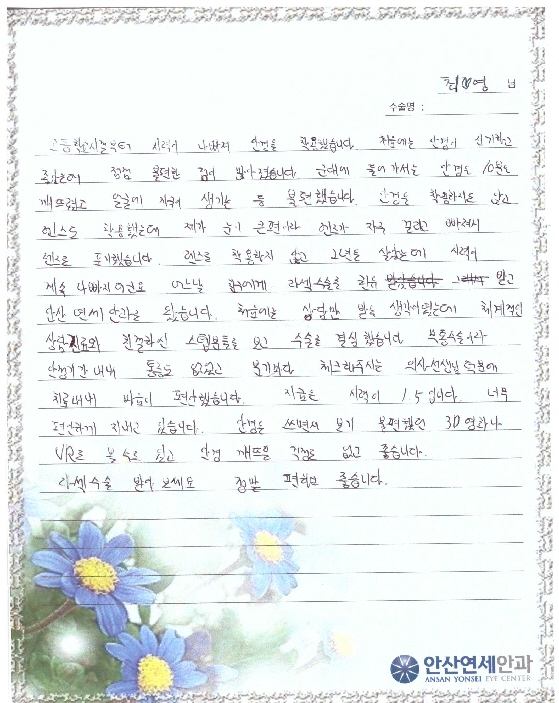 최♥영 님
수술명 :
고등학교시절부터 시력이 나빠져 안경을 착용했습니다. 처음에는 안경이 신기하고
좋았는데 점점 불편한 점이 많아졌습니다. 군대에 들어가서는 안경을 10번도
깨뜨렸고 얼굴에 자국이 생기는 등 불편했습니다. 안경을 착용하지도 않고
렌즈도 착용했는데 제가 눈이 큰편이라 렌즈가 자주 돌고 빠져서
렌즈를 포기했습니다. 렌즈를 착용하지 않고 2년을 살았는데 시력이
계속 나빠지더군요 어느날 라섹수술을 알고
안산 연세안과를 왔습니다. 처음에는 상담만 받을 생각이었는데 체계적인
상담진료와 친절하신 스텝분들을 보고 수술을 결심했습니다
안정기간내내 통증도 없었고 체크해주시는 의사선생님덕분에
치료내내 마음이 편안했습니다. 지금은 시력이 1.5입니다. 너무
편안하게 지내고 있습니다. 안경을 쓰면서 보기 불편했던 3D영화나
VR도 볼 수도 있고 안경 깨뜨릴 걱정도 없고 좋습니다.
라섹수술 받아 보세요 정말 편하고 좋습니다.
안산연세안과
ANSAN YONSEI EYE CENTER